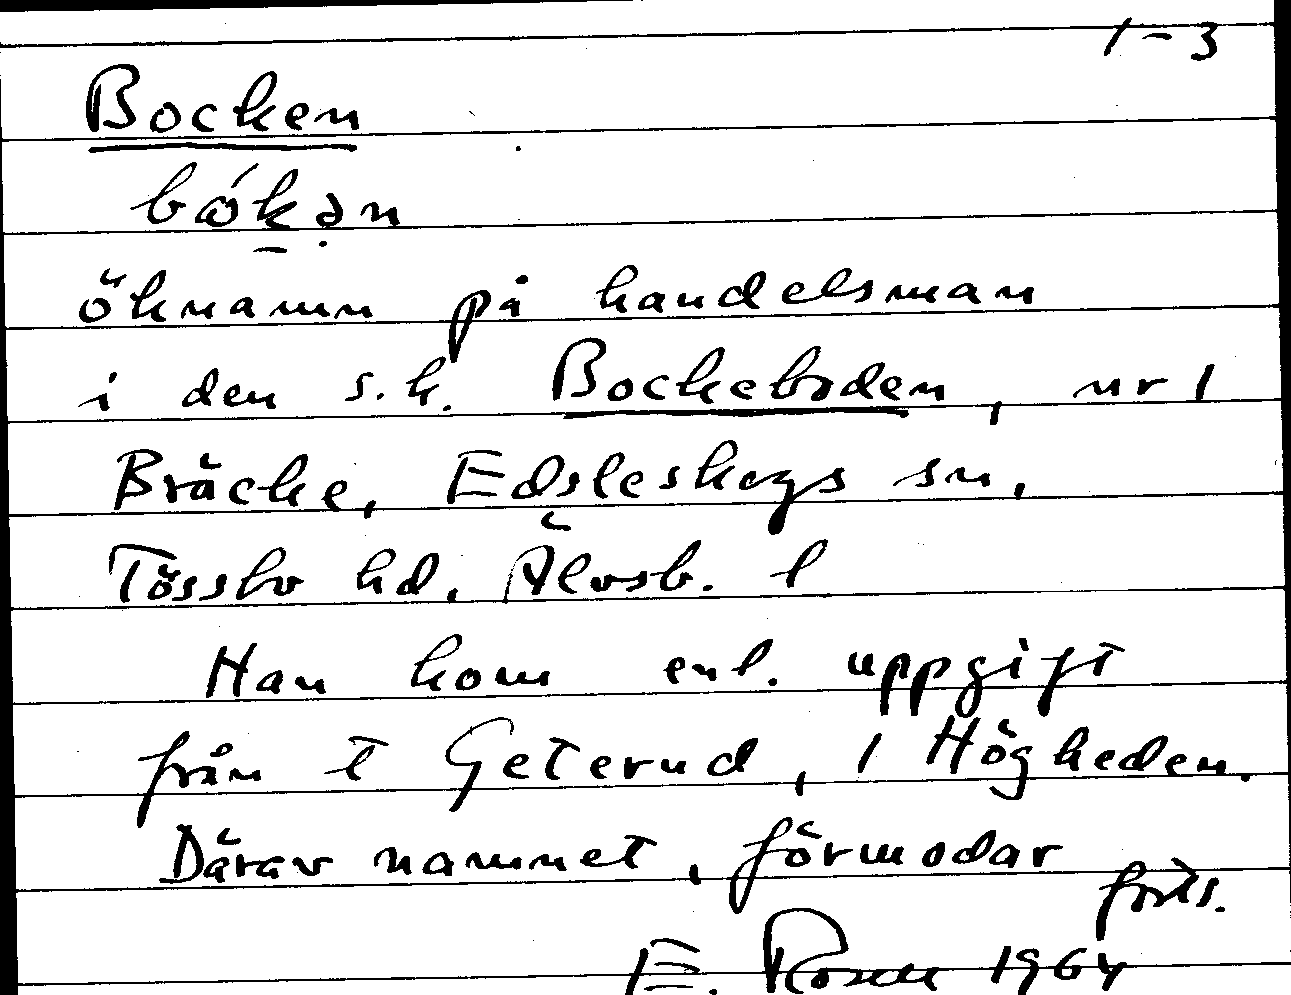 1-3
Bocken
bókən
öknamn på handelsman
i den s.k. Bockeboden, nr 1
Bräcke, Edsleskogs sn,
Tössbo hd. Älvsb. l
Han kom enl. uppgift
från t Geterud, 1 Högheden.
Därav namnet, förmodar
forts.
E. Rosell 1964